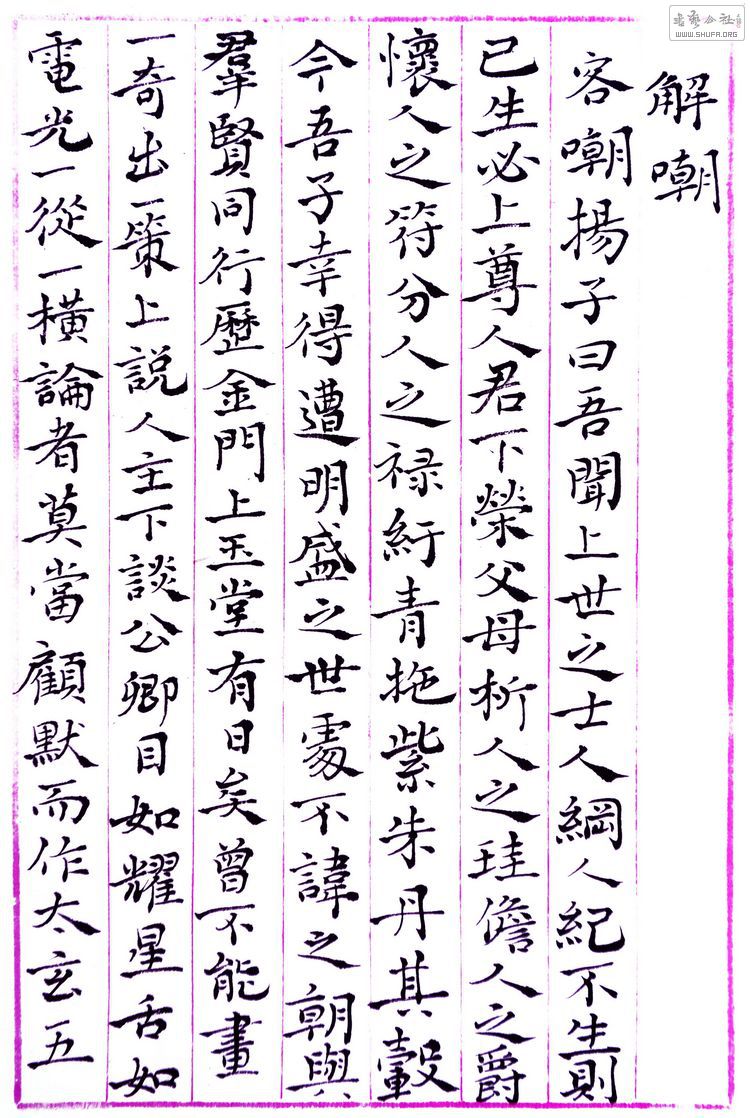 解嘲
客嘲揚子曰吾聞上世之士人綱人紀不生則
已生必上尊人君下榮父母析人之珪儋人之爵
懷人之符分人之祿紆青拖紫朱丹其轂
今吾子幸得遭明盛之世處不諱之朝與
羣賢同行歷金門上玉堂有日矣曾不能畫
一奇出一策上說人主下談公卿目如耀星舌如
電光一從一橫論者莫當顧默而作太玄五
WWW.SHUFA.ORG